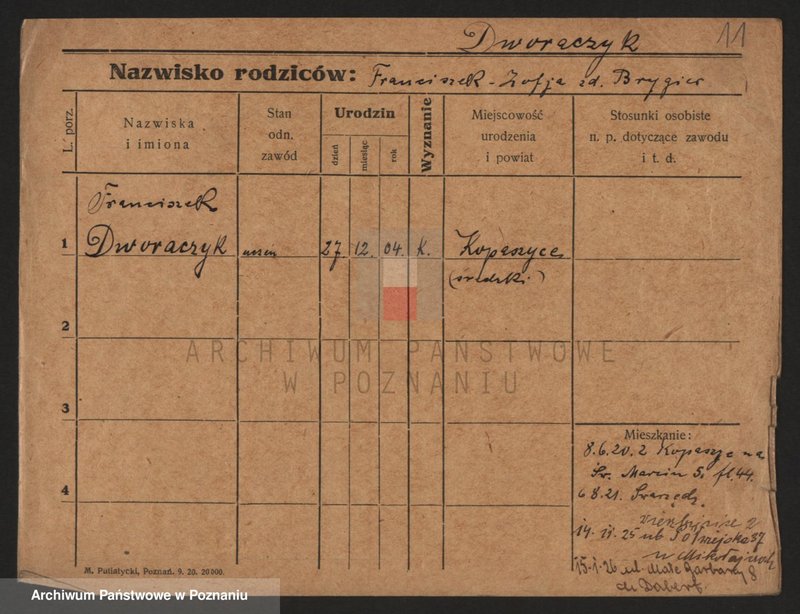 Dworaczyk 11
Nazwisko rodziców: Franciszek - Zofja zd. Brygier
L. porz.
Nazwiska
i imiona
Stan
odn.
zawód
Urodzin
dzień
miesiąc
rok
Wyznanie
Miejscowość
urodzenia
i powiat
Stosunki osobiste
n. p. dotyczące zawodu
i t. d.
Franciszek
1 Dworaczyk uczeń 27. 12. 04. K. Kopaszyce
(średzki)
2
ARCHIWUM PAŃSTWOWE
W POZNANIU
3
Mieszkanie:
8.6.20. z Kopaszyc na
Św. Marcin 5. fl. 44.
6 8.21. Swarzędz.
4
14. 11. 25 ul. 37
u
15.1.26 ul. Małe Garbary 8
M. Putiatycki, Poznań. 9. 20. 20000.
Archiwum Państwowe w Poznaniu